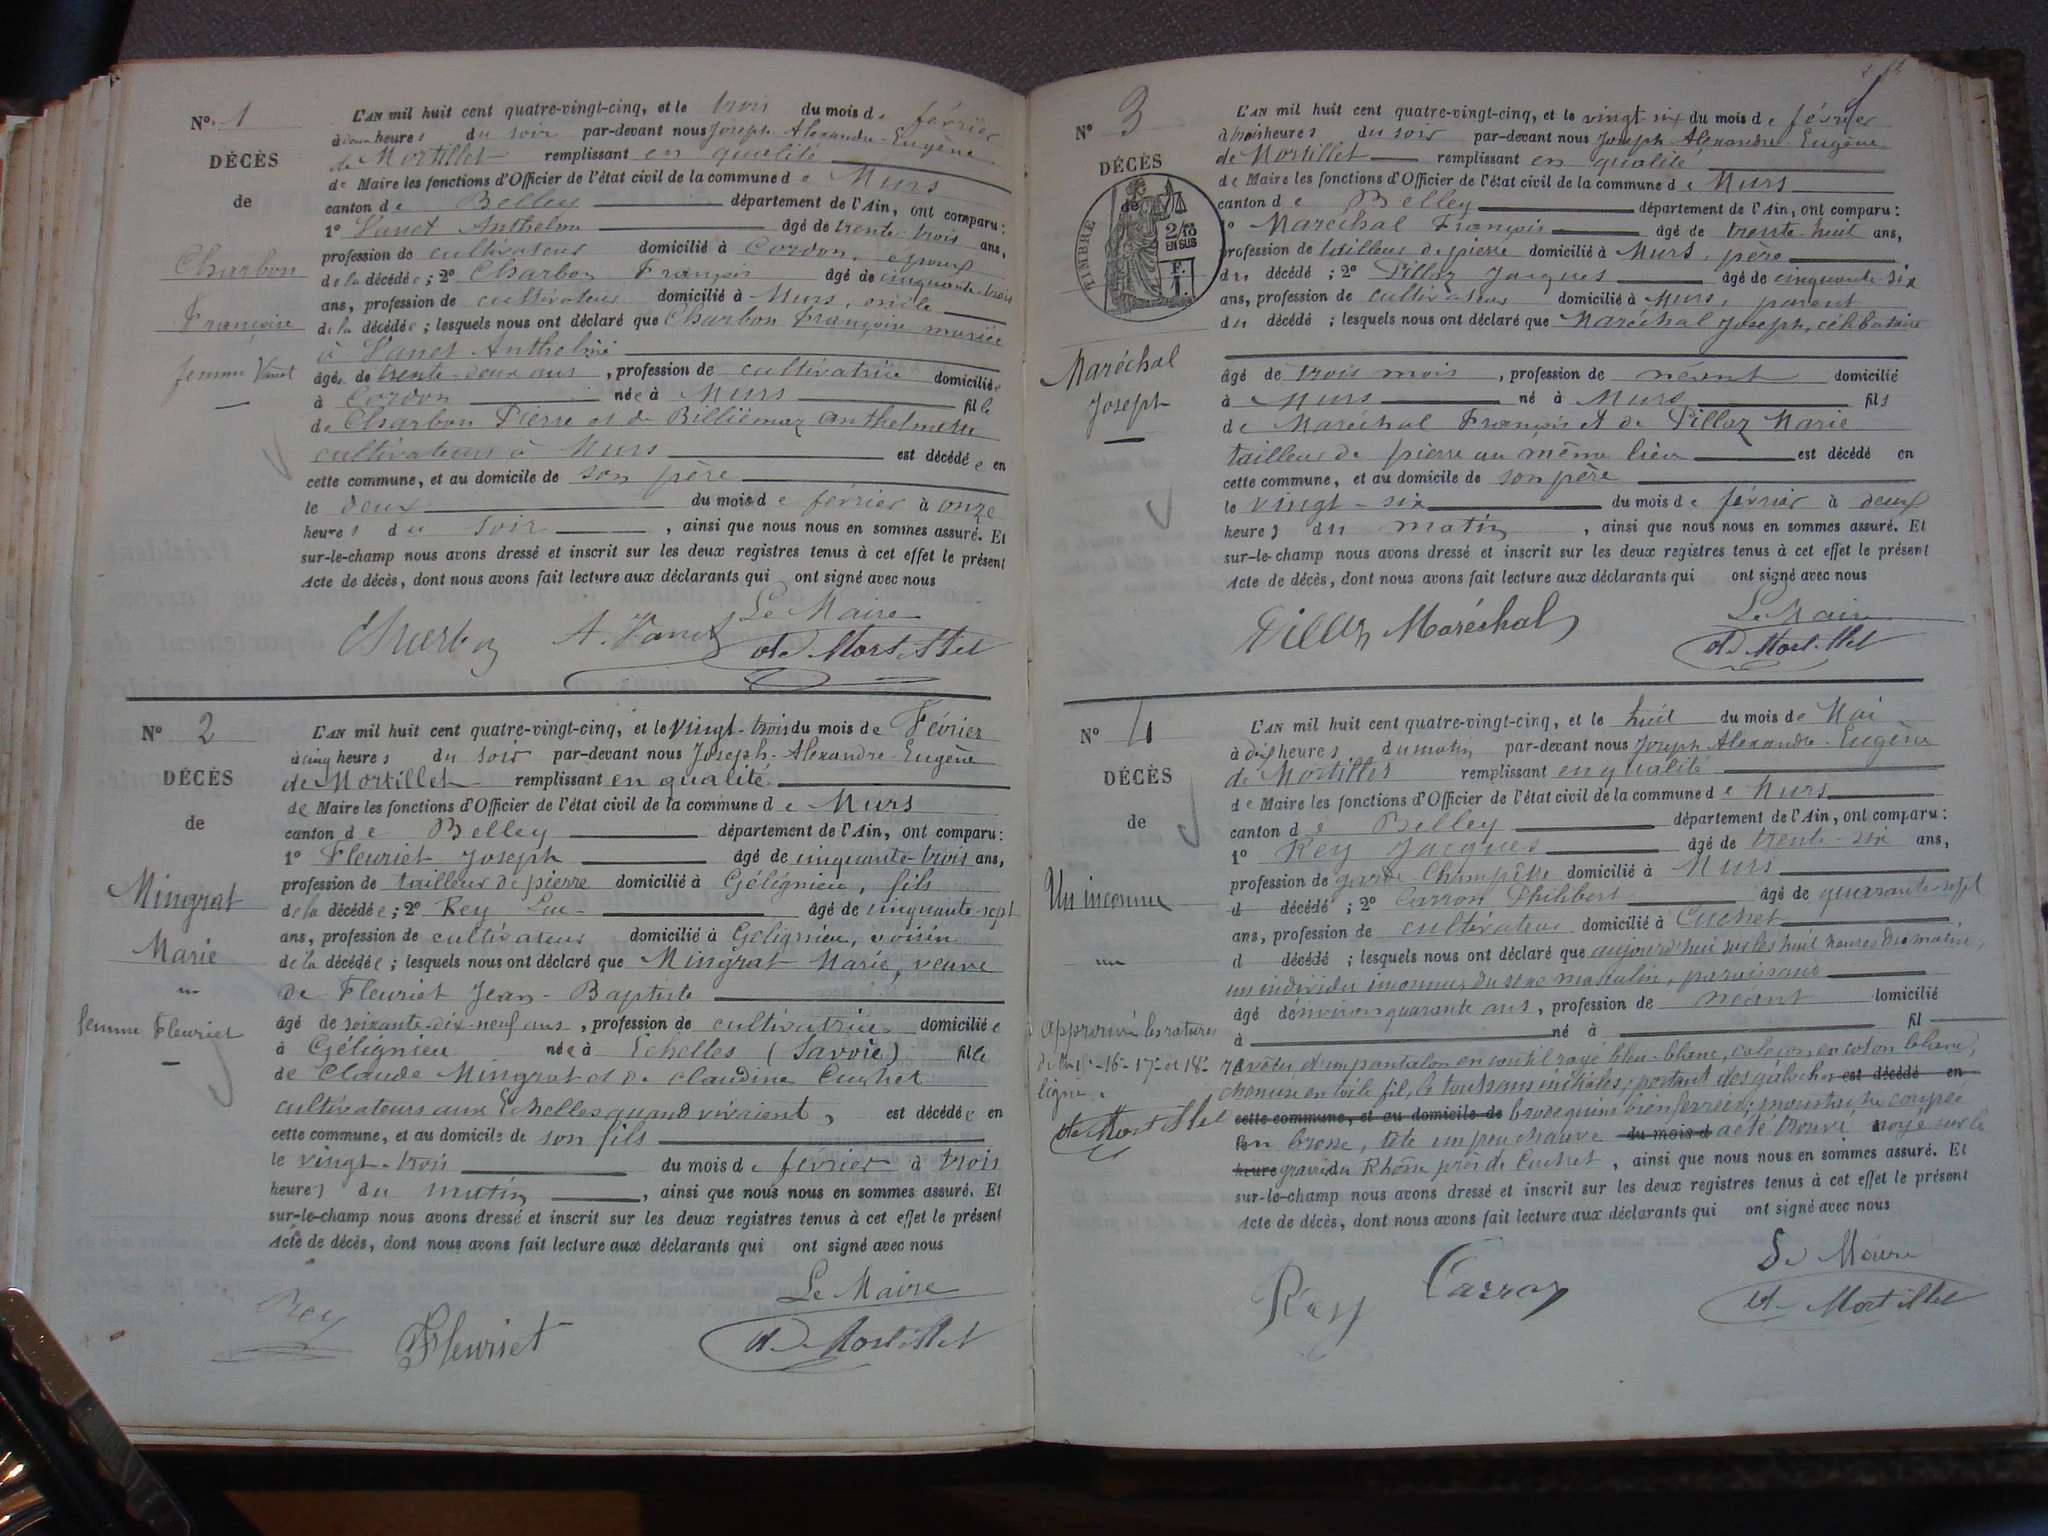 Nº 1
DÉCÈS
de
Charbon
Françoise
femme Vanet
L'AN mil huit cent quatre-vingt-cinq, et le trois du mois de février
à deux heures du soir par-devant nous Joseph Alexandre Eugène
de Mortillet remplissant en qualité
de Maire les fonctions d'Officier de l'état civil de la commune de Murs
canton de Belley département de l'Ain, ont comparu :
1º Vanet Anthelme âgé de trente-trois ans,
profession de cultivateur domicilié à Cordon, époux
de la décédée ; 2º Charbon François âgé de cinquante-trois
ans, profession de cultivateur domicilié à Murs, oncle
de la décédée ; lesquels nous ont déclaré que Charbon Françoise mariée
à Vanet Anthelme
âgée de trente-deux ans, profession de cultivatrice domiciliée
à Cordon née à Murs fille
de Charbon Pierre et de Billiémaz Anthelmette
cultivateurs à Murs est décédée en
cette commune, et au domicile de son père
le deux du mois de février à onze
heures du soir, ainsi que nous nous en sommes assuré. Et
sur-le-champ nous avons dressé et inscrit sur les deux registres tenus à cet effet le présent
Acte de décès, dont nous avons fait lecture aux déclarants qui ont signé avec nous
Charbon A. Vanet Le Maire
de Mortillet
Nº 2
DÉCÈS
de
Mingrat
Marie
femme Fleuriet
L'AN mil huit cent quatre-vingt-cinq, et le vingt-trois du mois de Février
à cinq heures du soir par-devant nous Joseph-Alexandre-Eugène
de Mortillet remplissant en qualité
de Maire les fonctions d'Officier de l'état civil de la commune de Murs
canton de Belley département de l'Ain, ont comparu :
1º Fleuriet Joseph âgé de cinquante-trois ans,
profession de tailleur de pierre domicilié à Gélignieu, fils
de la décédée ; 2º Rey Luc âgé de cinquante-sept
ans, profession de cultivateur domicilié à Gélignieu, voisin
de la décédée ; lesquels nous ont déclaré que Mingrat Marie, veuve
de Fleuriet Jean-Baptiste
âgé de soixante-dix-neuf ans, profession de cultivatrice domiciliée
à Gélignieu née à Echelles (Savoie) fille
de Claude Mingrat et de Claudine Cuchet
cultivateurs aux Echelles quand vivaient, est décédée en
cette commune, et au domicile de son fils
le vingt-trois du mois de février à trois
heures du matin, ainsi que nous nous en sommes assuré. Et
sur-le-champ nous avons dressé et inscrit sur les deux registres tenus à cet effet le présent
Acte de décès, dont nous avons fait lecture aux déclarants qui ont signé avec nous
Rey Fleuriet Le Maire
de Mortillet
Nº 3
DÉCÈS
de
TIMBRE
2/10
EN SUS
F.
1.
Maréchal
Joseph
L'AN mil huit cent quatre-vingt-cinq, et le vingt six du mois de février
à trois heures du soir par-devant nous Joseph Alexandre Eugène
de Mortillet remplissant en qualité
de Maire les fonctions d'Officier de l'état civil de la commune de Murs
canton de Belley département de l'Ain, ont comparu :
1º Maréchal François âgé de trente-huit ans,
profession de tailleur de pierre domicilié à Murs, père
du décédé ; 2º Pillaz Jacques âgé de cinquante-six
ans, profession de cultivateur domicilié à Murs, parent
du décédé ; lesquels nous ont déclaré que Maréchal Joseph, célibataire
âgé de trois mois, profession de néant domicilié
à Murs né à Murs fils
de Maréchal François et de Pillaz Marie
tailleur de pierre au même lieu est décédé en
cette commune, et au domicile de son père
le vingt-six du mois de février à deux
heures du matin, ainsi que nous nous en sommes assuré. Et
sur-le-champ nous avons dressé et inscrit sur les deux registres tenus à cet effet le présent
Acte de décès, dont nous avons fait lecture aux déclarants qui ont signé avec nous
Pillaz Maréchal Le Maire
de Mortillet
Nº 4
DÉCÈS
de
Un inconnu
Approuvé les ratures
de la 15e 16e 17e et 18e
ligne.
de Mortillet
L'AN mil huit cent quatre-vingt-cinq, et le huit du mois de Mai
à dix heures du matin par-devant nous Joseph Alexandre-Eugène
de Mortillet remplissant en qualité
de Maire les fonctions d'Officier de l'état civil de la commune de Murs
canton de Belley département de l'Ain, ont comparu :
1º Rey Jacques âgé de trente-six ans,
profession de garde champêtre domicilié à Murs
d décédé ; 2º Carron Philibert âgé de quarante-sept
ans, profession de cultivateur domicilié à Cuchet
d décédé ; lesquels nous ont déclaré que aujourd'hui sur les huit heures du matin,
un individu inconnu, du sexe masculin, paraissant
âgé d'environ quarante ans, profession de néant domicilié
à né à fil
revêtu d'un pantalon en coutil rayé bleu-blanc, caleçon en coton blanc,
chemise en toile fil, le tout sans initiales ; portant des est décédé en
cette commune, et au domicile de brodequins bien ferrés ; moustache coupée
en brosse, tête un peu chauve du mois d a été trouvé noyé sur le
heure gravier du Rhône près de Cuchet, ainsi que nous nous en sommes assuré. Et
sur-le-champ nous avons dressé et inscrit sur les deux registres tenus à cet effet le présent
Acte de décès, dont nous avons fait lecture aux déclarants qui ont signé avec nous
Rey Carron Le Maire
de Mortillet